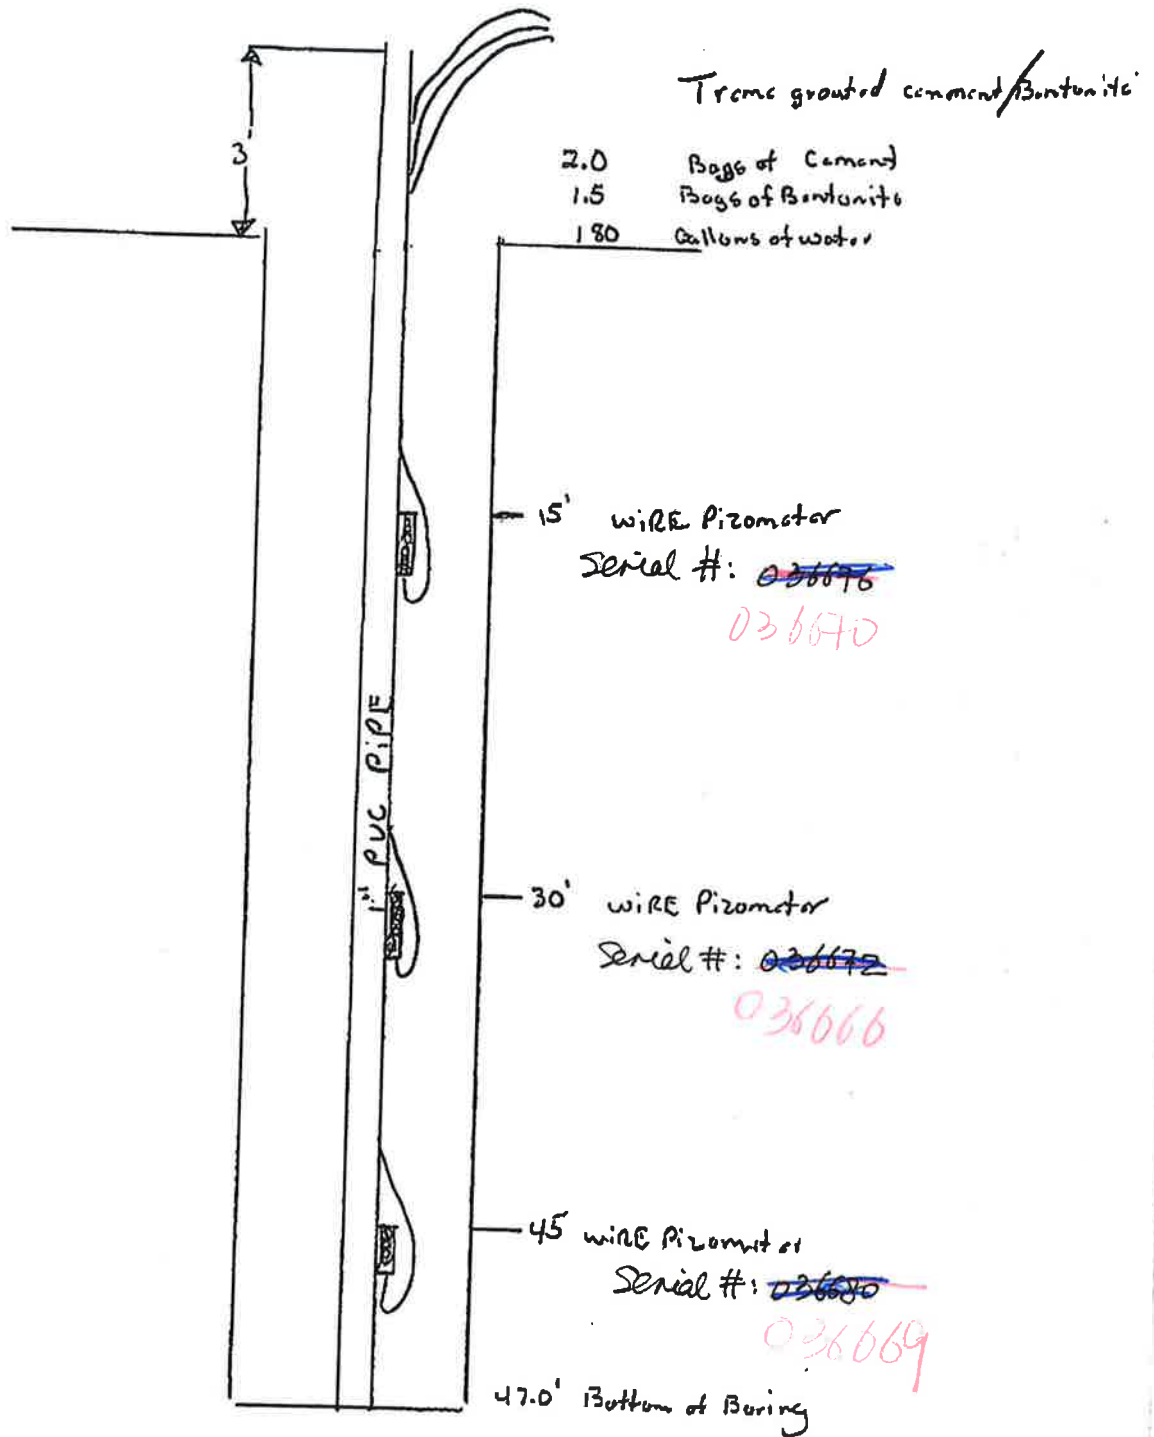 Treme grouted cement/Bentunite
3'
2.0 Bags of Cement
1.5 Bags of Bentunite
180 Gallons of water
15' wiRE Pizometer
Serial #: 036676
036670
1" PVC PiPE
30' wiRE Pizometer
Serial #: 036672
036666
45 wiRE Pizometer
Serial #: 036680
036669
47.0' Bottom of Boring